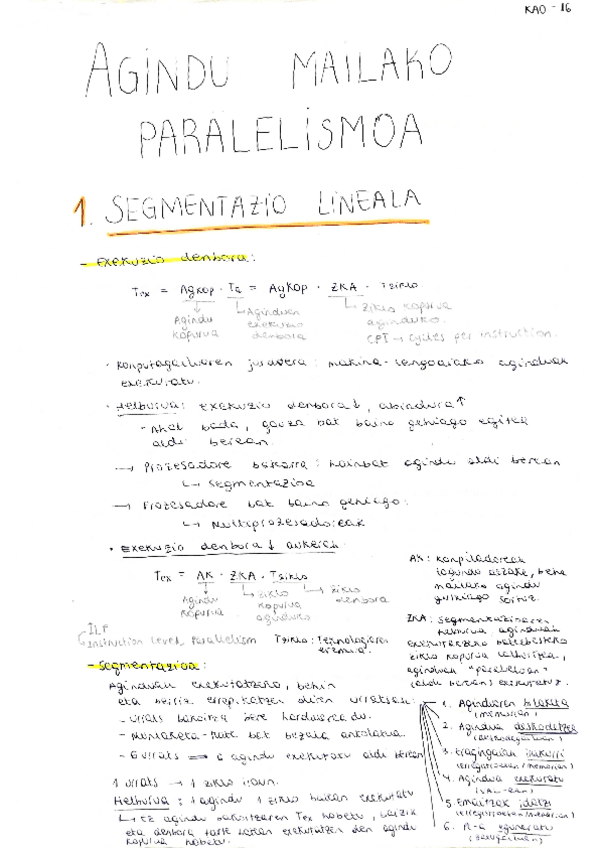 KAO - 16
AGINDU MAILAKO
PARALELISMOA
1. SEGMENTAZIO LINEALA
- Exekuzio denbora:
Tex = Agkop · Ta = Agkop · ZKA · Tziklo
Agindu kopurua
Aginduen exekuzio denbora
Ziklo kopurua aginduko.
CPI → cycles per instruction.
· Konputagailuaren jarduera: makina-lengoaiako aginduak
exekutatu.
· Helburua: exekuzio denbora ↓, abiadura ↑
- Ahal bada, gauza bat baino gehiago egitea
aldi berean.
→ Prozesadore bakarra: hainbat agindu aldi berean
↳ Segmentazioa
→ Prozesadore bat baino gehiago:
↳ Multiprozesadoreak
· Exekuzio denbora ↓ aukerak
Tex = AK · ZKA · Tziklo
Agindu kopurua
ziklo kopurua aginduko
ziklo denbora
AK: konpiladoreak
lagundu dezake, behe
mailako agindu
gutxiago sortuz.
ILP
(Instruction Level Parallelism
Tziklo: Teknologiaren
eremua.
ZKA: segmentazioaren
helburua, aginduak
exekutatzeko batezbesteko
ziklo kopurua
aginduak "paraleloan"
(aldi berean) exekutatuz.
- Segmentazioa:
Aginduak exekutatzeko, behin
eta berriz errepikatzen diren urratsak:
- Urrats bakoitza bere hardwarea du.
- Muntaketa-kate bat bezala antolatua.
- 6 urrats ⇒ 6 agindu exekutatu aldi berean
1 urrats → 1 ziklo iraun.
Helburua: 1 agindu 1 ziklo batean exekutatu
↳ Ez agindu bakoitzaren Tex hobetu, baizik
eta denbora tarte batean exekutatzen den agindu
kopurua hobetu.
1. Aginduaren bilaketa
(memorian)
2. Agindua deskodetzea
3. Eragigaiak irakurri
4. Agindua exekutatu
(UAL-ean)
5. Emaitzak idatzi
6. eguneratu